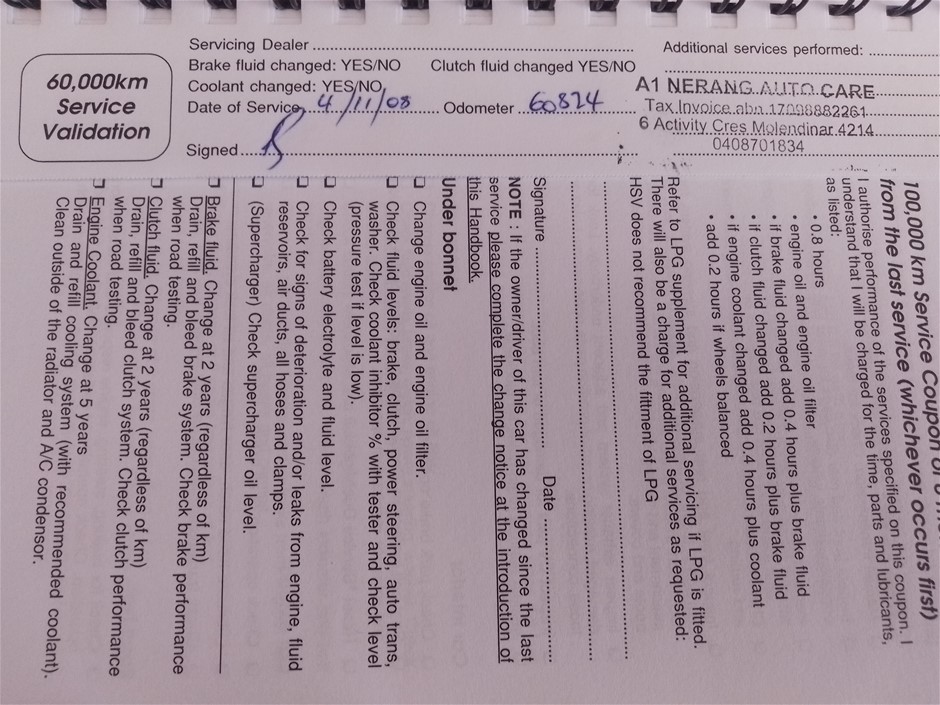 60,000km
Service
Validation
Servicing Dealer
Brake fluid changed: YES/NO Clutch fluid changed YES/NO
Coolant changed: YES/NO
Date of Service 4/11/08 Odometer 60824
Signed
Additional services performed:
A1 NERANG AUTO CARE
Tax Invoice abn 17098882261
6 Activity Cres Molendinar 4214
0408701834
100,000 km Service Coupon
from the last service (whichever occurs first)
I authorise performance of the services specified on this coupon. I
understand that I will be charged for the time, parts and lubricants,
as listed:
• 0.8 hours
• engine oil and engine oil filter
• if brake fluid changed add 0.4 hours plus brake fluid
• if clutch fluid changed add 0.2 hours plus brake fluid
• if engine coolant changed add 0.4 hours plus coolant
• add 0.2 hours if wheels balanced
Refer to LPG supplement for additional servicing if LPG is fitted.
There will also be a charge for additional services as requested:
HSV does not recommend the fitment of LPG
Signature Date
NOTE : If the owner/driver of this car has changed since the last
service please complete the change notice at the introduction of
this Handbook.
Under bonnet
❏ Change engine oil and engine oil filter.
❏ Check fluid levels: brake, clutch, power steering, auto trans,
washer. Check coolant inhibitor % with tester and check level
(pressure test if level is low).
❏ Check battery electrolyte and fluid level.
❏ Check for signs of deterioration and/or leaks from engine, fluid
reservoirs, air ducts, all hoses and clamps.
❏ (Supercharger) Check supercharger oil level.
❏ Brake fluid. Change at 2 years (regardless of km)
Drain, refill and bleed brake system. Check brake performance
when road testing.
❏ Clutch fluid. Change at 2 years (regardless of km)
Drain, refill and bleed clutch system. Check clutch performance
when road testing.
❏ Engine Coolant. Change at 5 years
Drain and refill cooling system (with recommended coolant).
Clean outside of the radiator and A/C condensor.